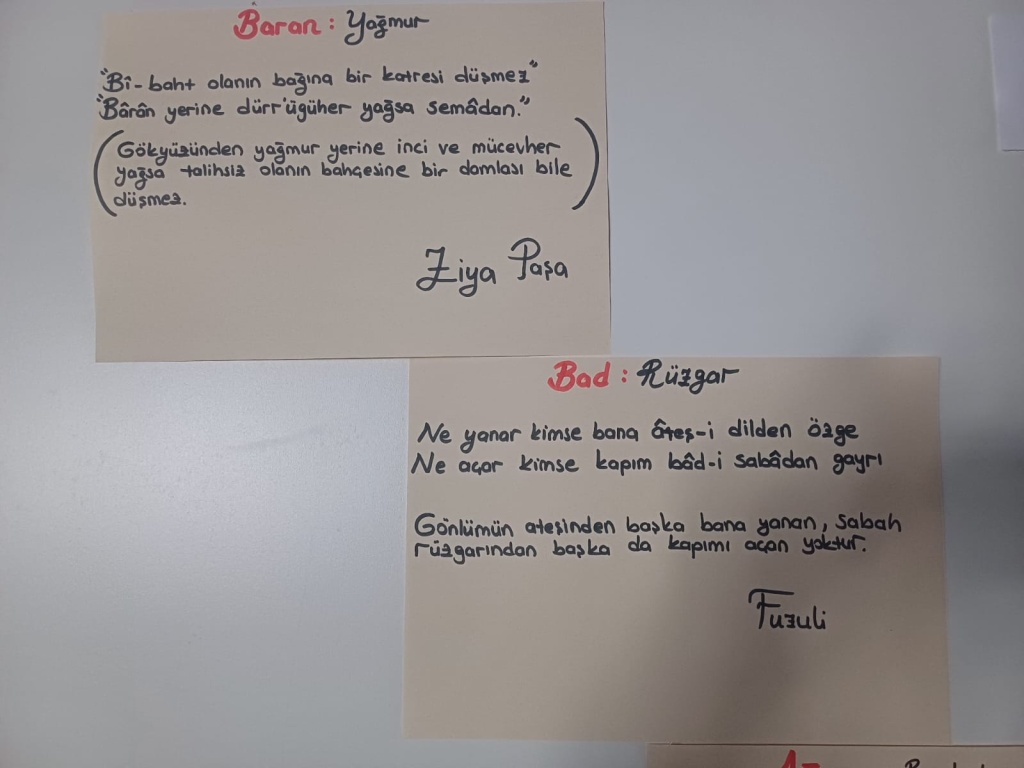 Baran : Yağmur
"Bî-baht olanın bağına bir katresi düşmez"
"Bârân yerine dürr'ügüher yağsa semâdan."
(Gökyüzünden yağmur yerine inci ve mücevher
yağsa talihsiz olanın bahçesine bir damlası bile
düşmez.)
Ziya Paşa
Bad : Rüzgar
Ne yanar kimse bana âteş-i dilden özge
Ne açar kimse kapım bâd-i sabâdan gayrı
Gönlümün ateşinden başka bana yanan, sabah
rüzgarından başka da kapımı açan yoktur.
Fuzuli